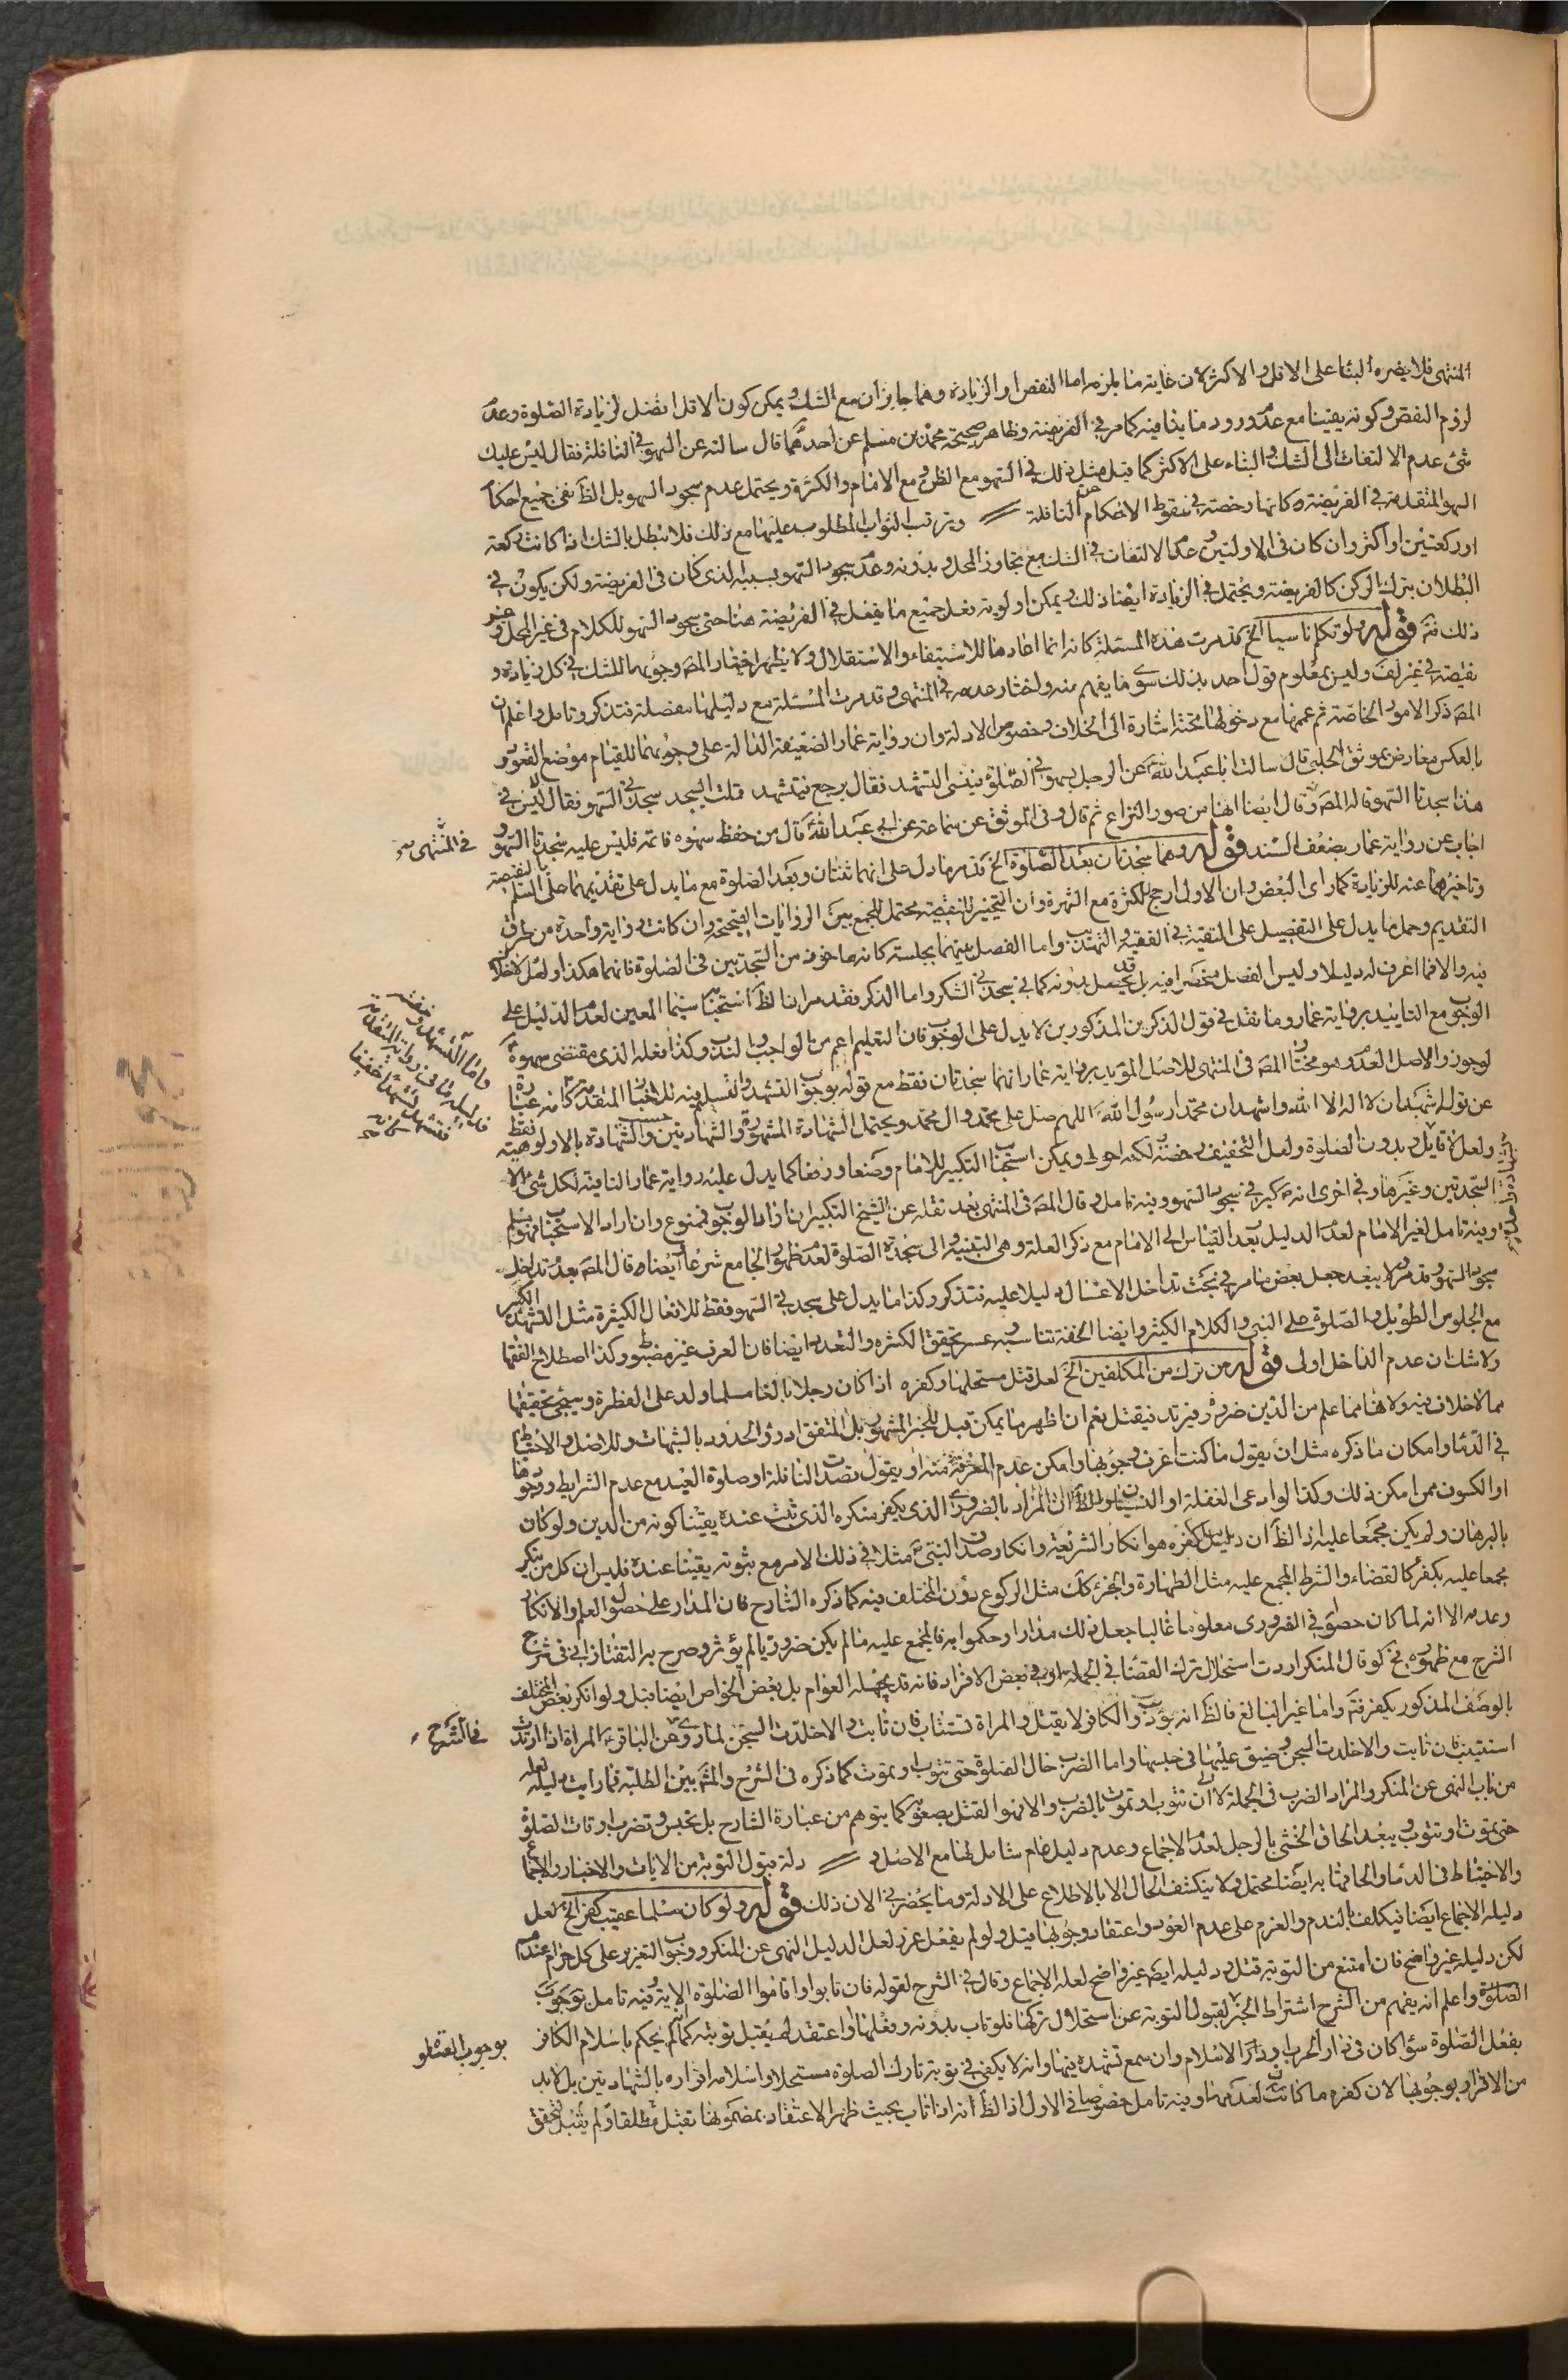 المنتهى فلا يضره البناء على الاقل والاكثر لان غاية ما يلزمه اما النقص او الزيادة وهما جايزان مع الشك ويمكن كون الاقل افضل لزيادة الصلوة وعدم
لزوم النقص وكونه يقينا مع عدم ورود ما ينافيه كما مر في الفريضة وظاهر صحيحة محمد بن مسلم عن احدهما قال سالته عن السهو في النافلة فقال ليس عليك
شئ عدم الالتفات الى الشك والبناء على الاكثر كما قيل مثل ذلك في السهو مع الظن ومع الامام والكثرة ويحتمل عدم سجود السهو بل الظ نفى جميع احكام
السهو المتقدمة في الفريضة وكانها رخصة في سقوط الاحكام عن النافلة وترتب الثواب المطلوب عليها مع ذلك فلا تبطل بالشك اذا كانت ركعة
او ركعتين او اكثر وان كان فى الاولتين وعدم الالتفات في الشك مع تجاوز المحل وبدونه وعدم سجود السهو بسببه الذى كان فى الفريضة ولكن يكون في
البطلان بترك الركن كالفريضة ويحتمل في الزيادة ايضا ذلك ويمكن اولوية فعل جميع ما يفعل في الفريضة هنا حتى سجود السهو للكلام فى غير المحل وغير
ذلك فت قوله ولو تكلم ناسيا الخ قد مرت هذه المسئلة كانه انما اعادها للاستيفاء والاستقلال ولا يظهر اختيار المص وجوبهما للشك في كل زيادة و
نقيصة في غير لف وليس بمعلوم قول احد بذلك سوى ما يفهم منه واختار عدمه في المنتهى وقد مرت المسئلة مع دليلها مفصلة فتذكر وتامل واعلم ان
المص ذكر الامور الخاصة ثم عممها مع دخولها تحته اشارة الى الخلاف وخصوص الادلة وان رواية عمار الضعيفة الدالة على وجوبهما للقيام موضع القعود و
بالعكس معارض بموثق الحلبي قال سالت ابا عبد الله عن الرجل يسهو في الصلوة فينسى التشهد فقال يرجع فيتشهد قلت ايسجد سجدتى السهو فقال ليس في
هذا سجدتا السهو قاله المص وقال ايضا انها من صور النزاع ثم قال وفى الموثق عن سماعة عن ابى عبد الله قال من حفظ سهوه فاتمه فليس عليه سجدتا السهو و
فى المنتهى
اجاب عن رواية عمار بضعف السند قوله وهما سجدتان بعد الصلوة الخ قد مر ما دل على انهما ثنتان وبعد الصلوة مع ما يدل على تقديمهما على السلم بالنقيصة
وتاخيرهما عنه للزيادة كما راى البعض وان الاول ارجح للكثرة مع الشهرة وان التخيير للنقيصة محتمل للجمع بين الروايات الصحيحة وان كانت رواية واحدة من طرف
التقديم وحمل ما يدل على التفصيل على التقية في الفقيه والتهذيب واما الفصل بينهما بجلسة كانه ماخوذ من السجدتين فى الصلوة فانهما هكذا ولعل لا خلاف
فيه والا فما اعرف له دليلا وليس الفصل منحصرا فيه بل قد يحصل بدونه كما في سجدتى الشكر واما الذكر فقد مر انا لظ استحبابه سيما المعين لعدم الدليل على
واما التشهد وخفته فدليله ما فى رواية المتقدمة فتشهد تشهدا خفيفا
الوجوب مع التاييد برواية عمار وما نقل في قول الذكرين المذكورين لا يدل على الوجوب فان التعليم اعم من الواجب والندب وكذا فعله الذى مقتضى سهوه
لوجوز والاصل العدم وهو مختار المص فى المنتهى للاصل المؤيد برواية عمار انهما سجدتان فقط مع قوله بوجوب التشهد والتسليم فيه للاخبار المتقدمة كانه عبارة
عن قوله اشهد ان لا اله الا الله واشهد ان محمدا رسول الله اللهم صل على محمد وال محمد ويحتمل الشهادة المشهورة والشهادتين وحسب والشهادة بالالوهية فقط
ولعل لا قايل به وبدون الصلوة ولعل التخفيف رخصة لكنه احوط ويمكن استحباب التكبير للامام وضعا ورفعا كما يدل عليه رواية عمار النافية لكل شئ الا
السجدتين وغيرها وفي اخرى انه كبر في سجود السهو وفيه تامل وقال المص فى المنتهى بعد نقله عن الشيخ التكبير ان اراد الوجوب فممنوع وان اراد الاستحباب فهو مسلم
وفيه تامل لغير الامام لعدم الدليل بعد القياس الى الامام مع ذكر العلة وهى التنبيه والى سجدة الصلوة لعدم ظهور الجامع شرعا ايضا وقال المص بعدم تداخل
سجود السهو وقد مر ولا يبعد جعل بعض ما مر في بحث تداخل الاغسال دليلا عليه فتذكر وكذا ما يدل على سجدتى السهو فقط للافعال الكثيرة مثل التشهد الكبير
مع الجلوس الطويل والصلوة على النبي والكلام الكثير وايضا الخفة تناسبه وعسر تحقيق الكثرة والتعدد ايضا فان العرف غير مضبوط وكذا اصطلاح الفقها
ولا شك ان عدم التداخل اولى قوله من ترك من المكلفين الخ لعل قتل مستحلها وكفره اذا كان رجلا بالغا مسلما ولد على الفطرة وسيجئ تحقيقها
مما لا خلاف فيه ولانها مما علم من الدين ضرورة فيرتد فيقتل نعم ان اظهر ما يمكن قبل للخبر المشهور بل المتفق ادرؤ الحدود بالشبهات وللاصل والاحتياط
في الدماء وامكان ما ذكره مثل ان يقول ما كنت اعرف وجوبها وامكن عدم المعرفة منه او يقول قصدت النافلة او صلوة العيد مع عدم الشرايط ووجوبها
او الكسوف ممن امكن ذلك وكذا لو ادعى الغفلة او النسيان والظ ان المراد بالضرورى الذى يكفر منكره الذى ثبت عنده يقينا كونه من الدين ولو كان
بالبرهان ولم يكن مجمعا عليه اذ الظ ان دليل كفره هو انكار الشريعة وانكار صدق النبي مثلا في ذلك الامر مع ثبوته يقينا عنده فليس ان كل من ينكر
مجمعا عليه يكفر كالقضاء والشرط المجمع عليه مثل الطهارة والجزء كك مثل الركوع دون المختلف فيه كما ذكره الشارح فان المدار على حصول العلم والانكار
وعدمه الا انه لما كان حصوله في الضرورى معلوما غالبا جعل ذلك مدارا وحكموا به فالمجمع عليه ما لم يكن ضروريا لم يؤثر وصرح به التفتازانى فى شرح
الشرح مع ظهوره نحو قال المنكر اردت استحلال ترك القضاء في الجملة او في بعض الافراد فانه قد يجهله العوام بل بعض الخواص ايضا قبل ولو انكر بعض المختلف
بالوصف المذكور يكفر فت واما غير البالغ فالظ انه يؤدب والكافر لا يقتل والمراة تستتاب فان تابت والا خلدت السجن لما روى عن الباقر المراة اذا ارتدت
فى الشرح
استتيبت فان تابت والا خلدت السجن وضيق عليها فى حبسها واما الضرب حال الصلوة حتى تتوب او تموت كما ذكره فى الشرح والمش بين الطلبة فما رايت دليله لعله
من باب النهى عن المنكر والمراد الضرب فى الجملة لا الى ان تتوب او تموت بالضرب والا فهو القتل بصعوبة كما يتوهم من عبارة الشارح بل تحبس وتضرب اوقات الصلوة
حتى تموت او تتوب ويبعد الحاق الخنثى بالرجل لعدم الاجماع وعدم دليل عام شامل لها مع الاصل و دلة قبول التوبة من الايات والاخبار والاجماع
والاحتياط فى الدماء والحاقها به ايضا محتمل ولا ينكشف الحال الا بالاطلاع على الادلة وما يحضرنى الان ذلك قوله ولو كان مسلما عقيب كفر الخ لعل
دليله الاجماع ايضا فيكلف بالندم والعزم على عدم العود واعتقاد وجوبها قبل ولو لم يفعل عزر لعل الدليل النهى عن المنكر ووجوب التعزير على كل حرام عندهم
لكن دليله غير واضح فان امتنع من التوبة قتل ودليله ايضا غير واضح لعله الاجماع وقال في الشرح لقوله فان تابوا واقاموا الصلوة الاية وفيه تامل
الصلوة واعلم انه يفهم من الشرح اشتراط لقبول التوبة عن استحلال تركها فلو تاب بدونه وفعلها او اعتقد لم يقبل توبته كما لم يحكم باسلام الكافر
بفعل الصلوة سواء كان فى دار الحرب او دار الاسلام وان سمع تشهده فيها وانه لا يكفى في توبة تارك الصلوة مستحلا واسلامه اقراره بالشهادتين بل لا بد
من الاقرار بوجوبها لان كفره ما كانت لعدمها وفيه تامل خصوصا في الاول اذ الظ انه اذا تاب بحيث ظهر الاعتقاد بمضمونها تقبل مطلقا ولم